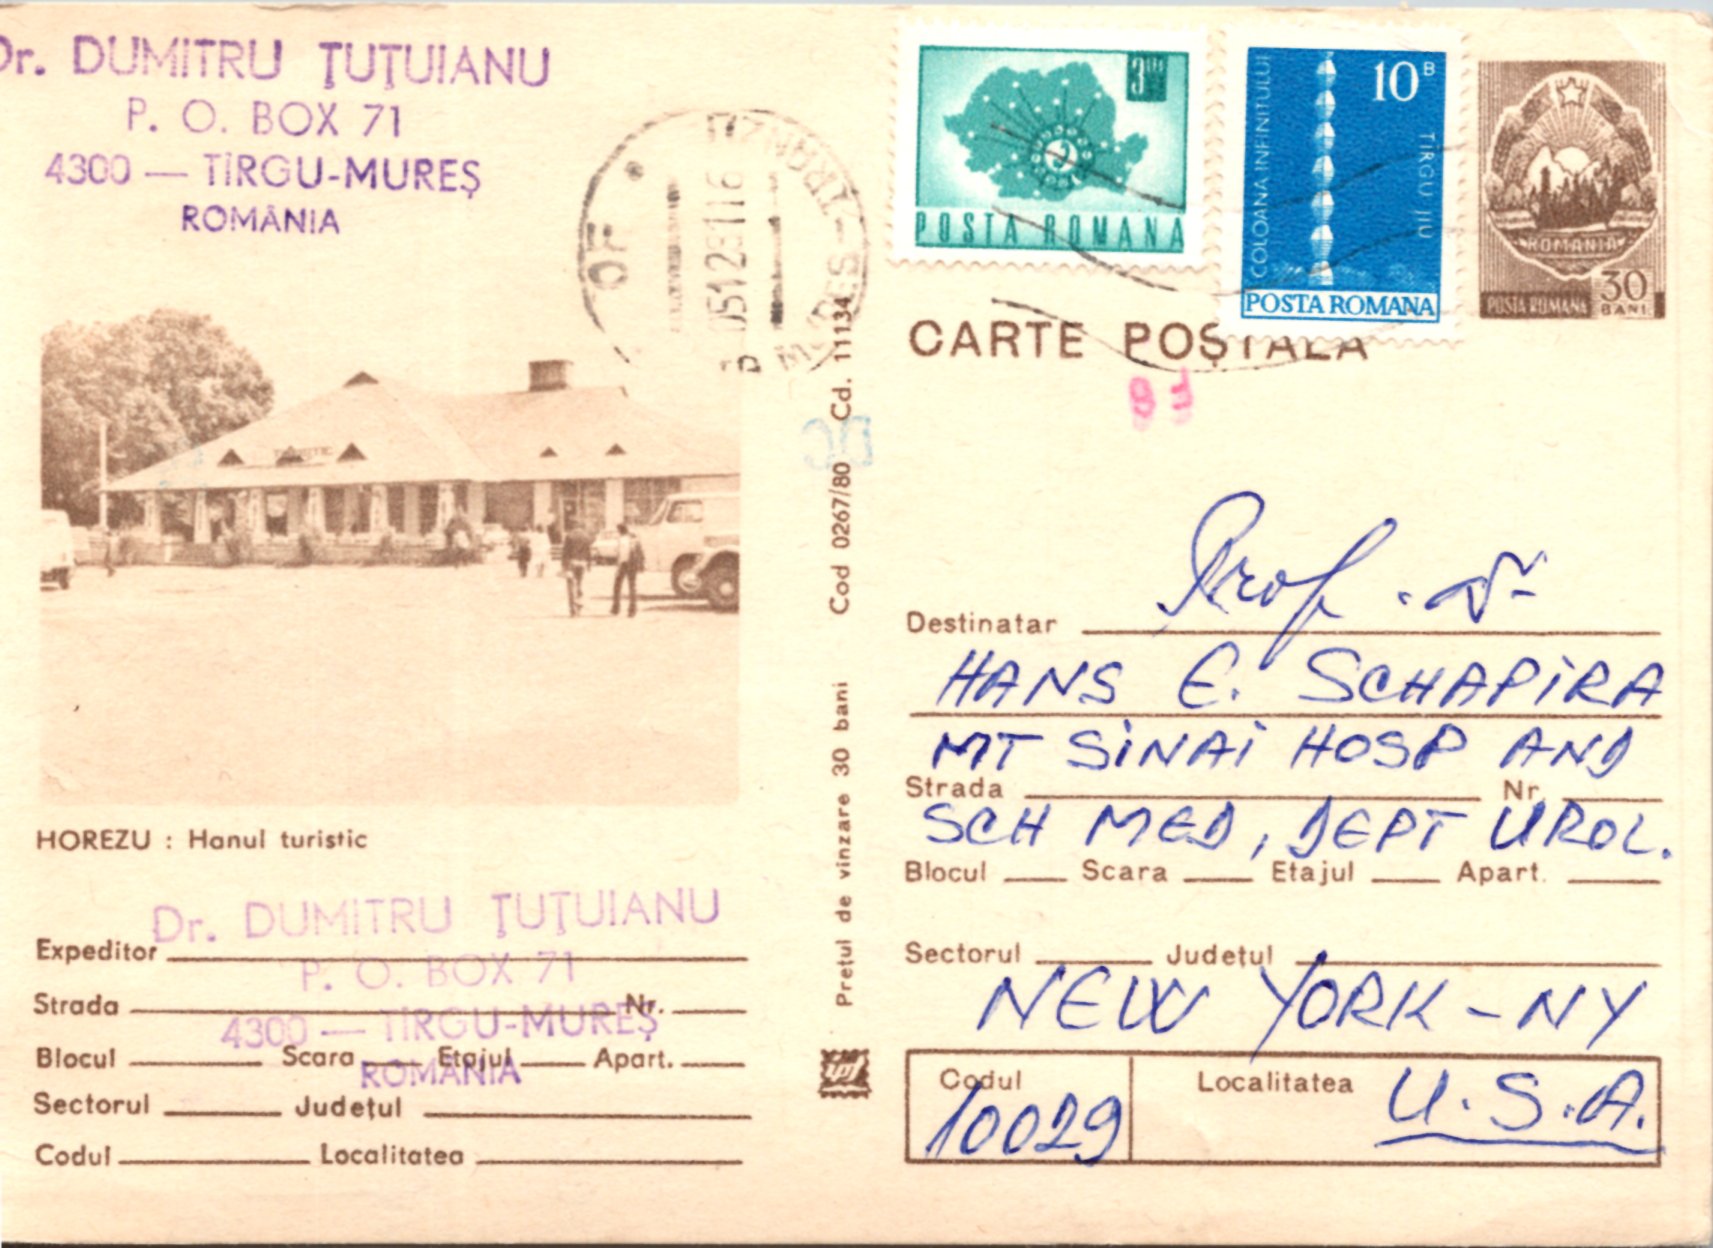 Dr. DUMITRU ŢUŢUIANU
P. O. BOX 71
4300 — TÎRGU-MUREŞ
ROMÂNIA
OF
TRANZIT
MUREŞ
3 LEI
POSTA ROMANA
COLOANA INFINITULUI
TIRGU JIU
10 B
POSTA ROMANA
ROMANIA
POSTA ROMANA
30
BANI
CARTE POŞTALĂ
HOREZU : Hanul turistic
Dr. DUMITRU ŢUŢUIANU
P. O. BOX 71
4300 — TÎRGU-MUREŞ
ROMÂNIA
Expeditor
Strada Nr.
Blocul Scara Etajul Apart.
Sectorul Judeţul
Codul Localitatea
Preţul de vînzare 30 bani Cod 0267/80 Cd. 11134
Destinatar Prof. Dr
HANS E. SCHAPIRA
MT SINAI HOSP AND
Strada Nr.
SCH MED, DEPT UROL.
Blocul Scara Etajul Apart.
Sectorul Judeţul
NEW YORK - NY
Codul Localitatea
10029 U.S.A.